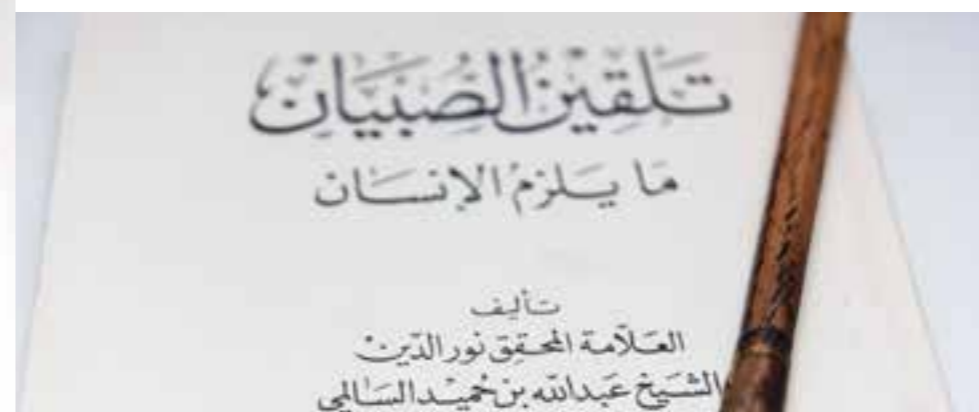 تلقين الصبيان
ما يلزم الإنسان
تأليف
العلامة المحقق نور الدين
الشيخ عبدالله بن حميد السالمي